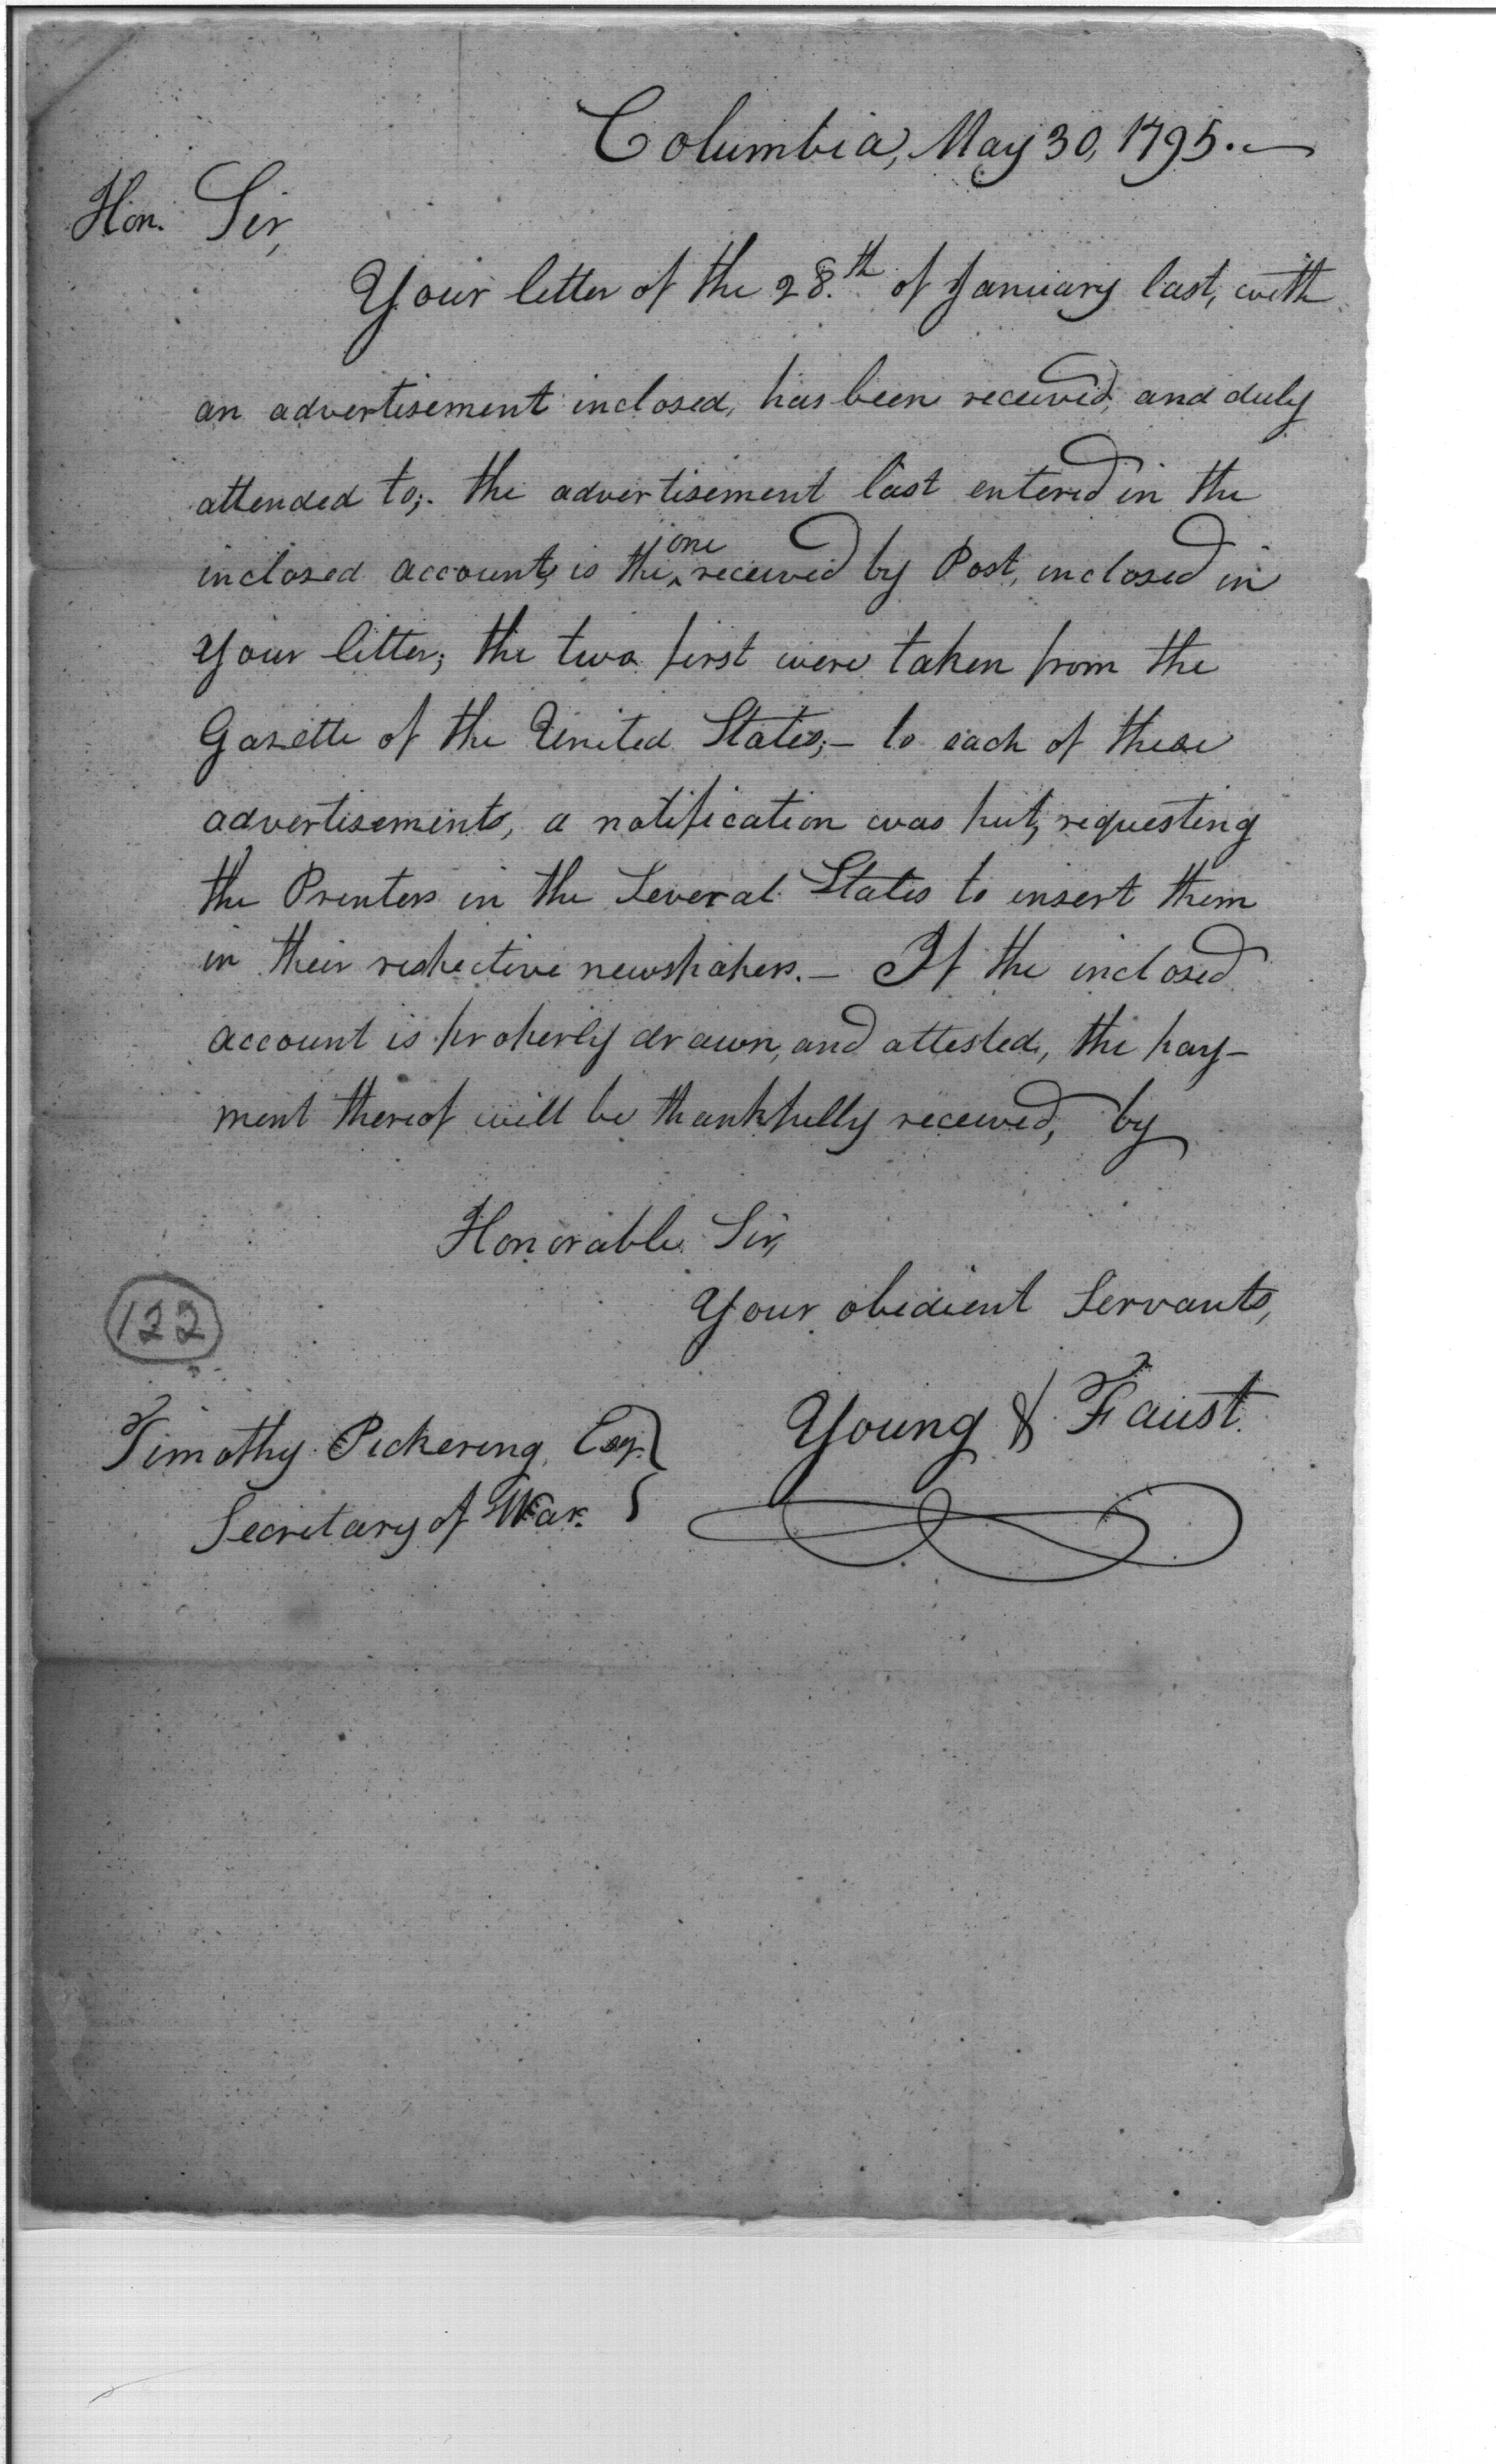 Columbia, May 30, 1795.—
Hon. Sir,
Your letter of the 28.th of January last, with
an advertisement inclosed, has been received, and duly
attended to;. the advertisement last entered in the
inclosed account, is the ^one received by Post, inclosed in
your letter; the two first were taken from the
Gazette of the United States;— to each of these
advertisements, a notification was put, requesting
the Printers in the Several States to insert them
in their respective newspapers.— If the inclosed
account is properly drawn, and attested, the pay-
ment thereof will be thankfully received, by
Honorable Sir,
Your obedient Servants,
122
Young & Faust.
Timothy Pickering, Esq. }
Secretary of War. }